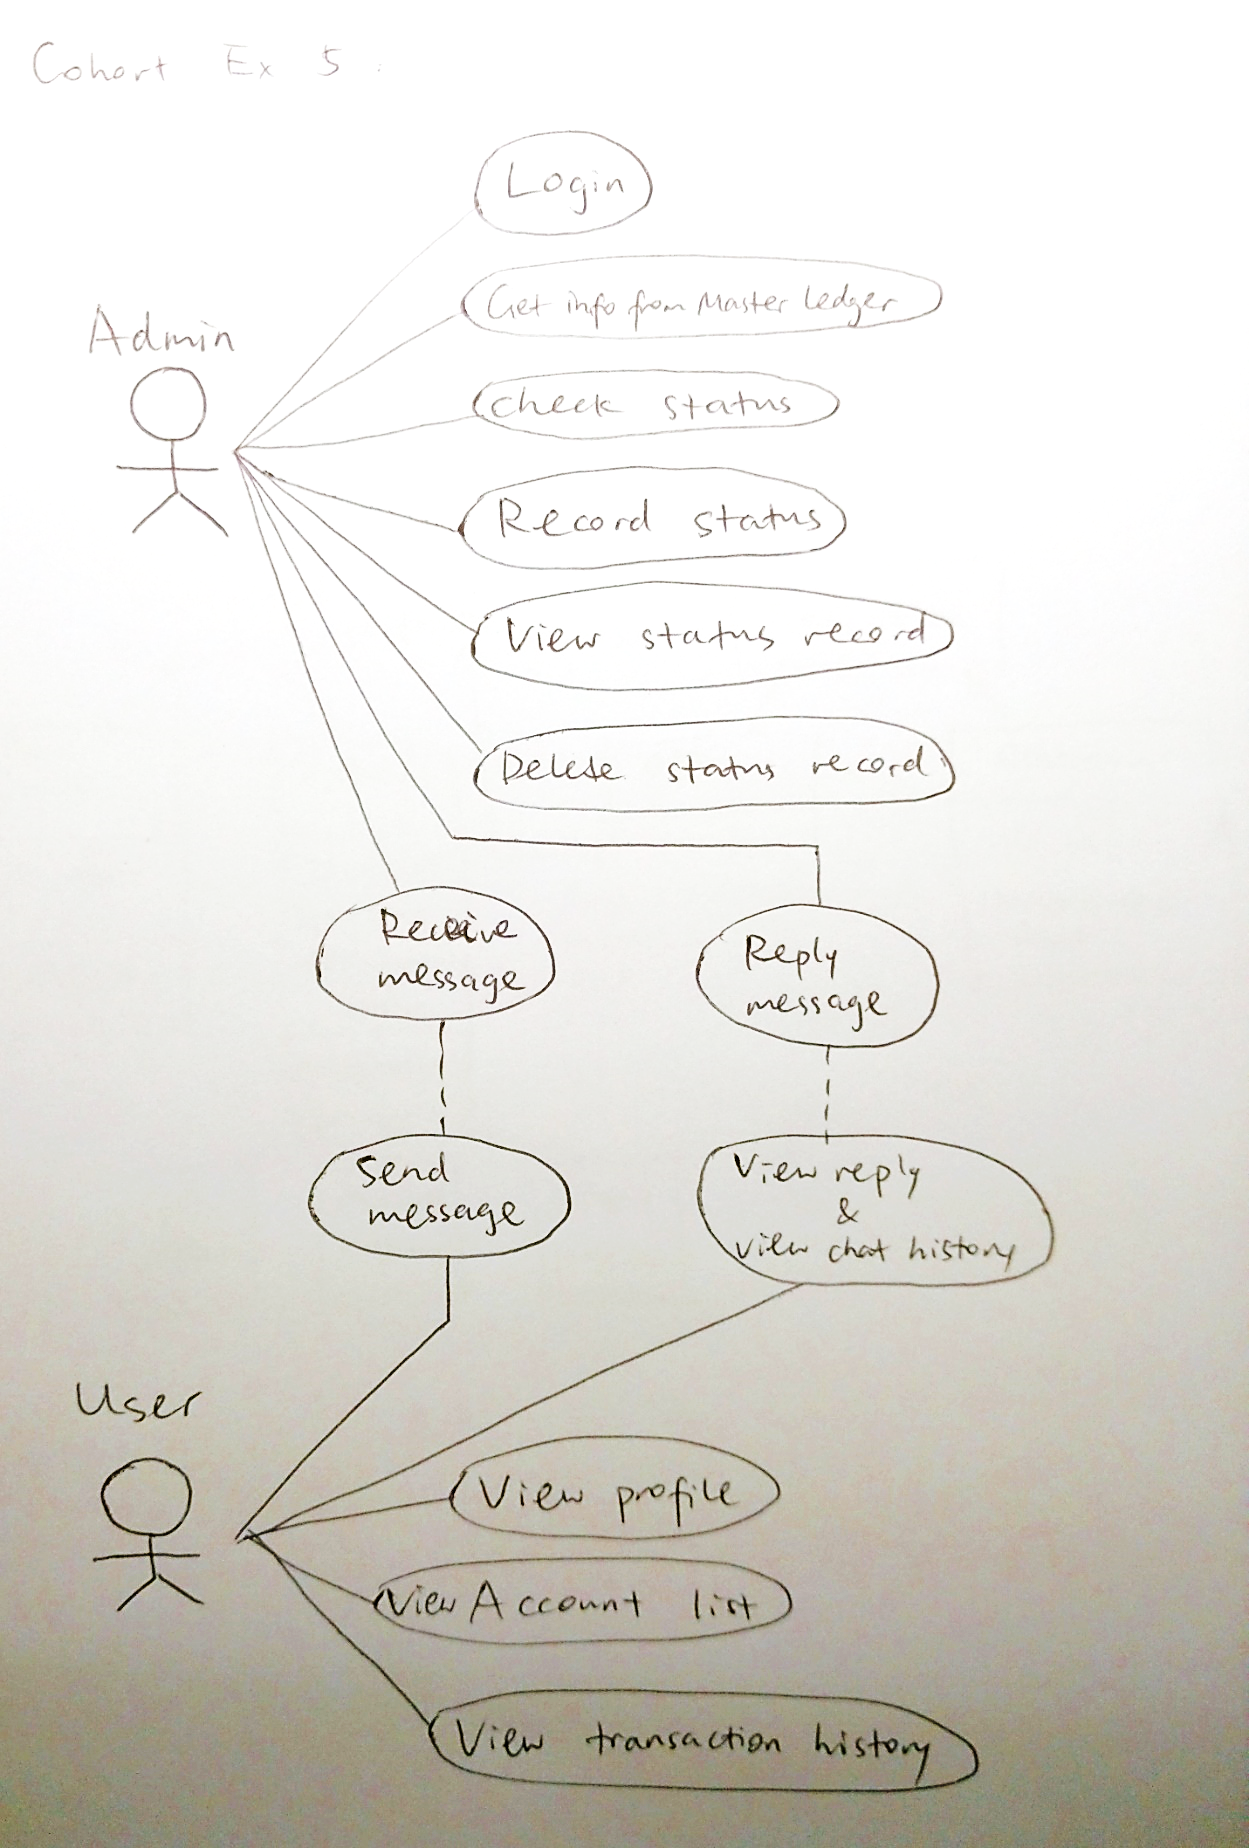 Cohort Ex 5 :
Login
Get info from Master Ledger
Admin
check status
Record status
View status record
Delete status record
Receive
message
Reply
message
Send
message
View reply
&
View chat history
User
View profile
View Account list
View transaction history